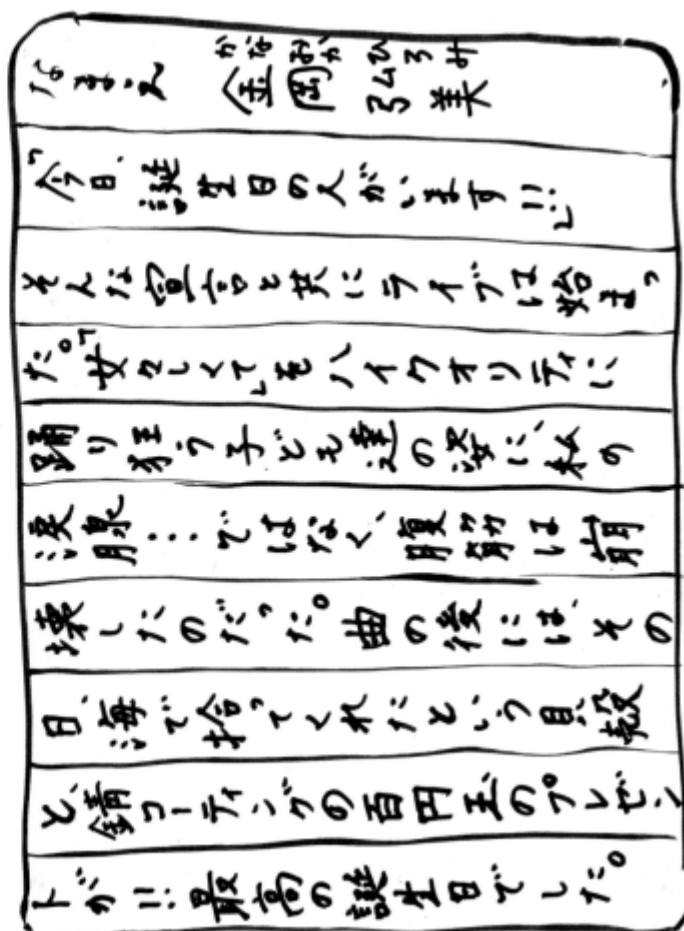 なまえ 金岡弘美
かなおかひろみ
「今日、誕生日の人がいます!!」
そんな宣言と共にライブは始まっ
た。「女々しくて」をハイクオリティに
踊り狂う子ども達の姿に、私の
涙腺…ではなく、腹筋は崩
壊したのだった。曲の後には、その
日、海で拾ってくれたという貝殻
と、錆コーティングの百円玉のプレゼン
トが!!最高の誕生日でした。